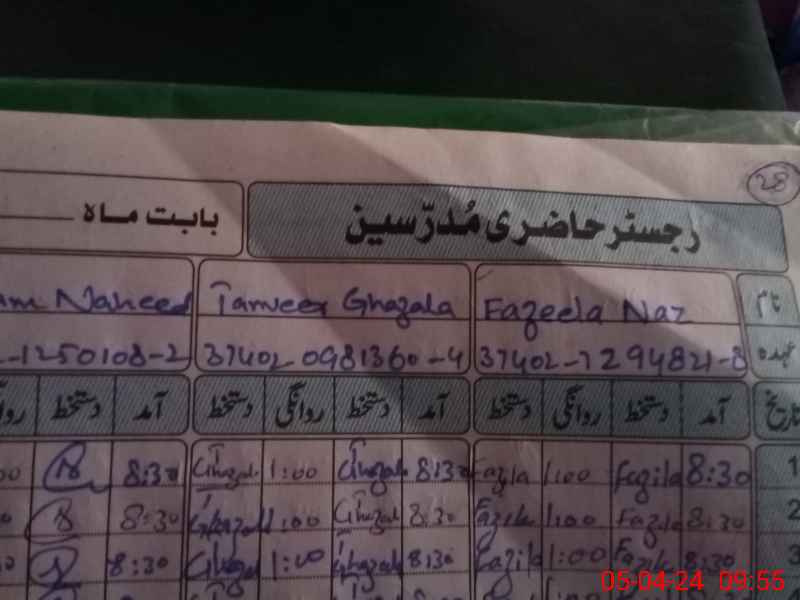 28
رجسٹر حاضری مُدرّسین
بابت ماہ
نام Fazeela Naz Tanveer Ghazala Naheed
عہدہ 37402-7294821-8 37402-0981360-4 -1250108-2
تاریخ آمد دستخط روانگی دستخط آمد دستخط روانگی دستخط آمد دستخط
1 8:30 Fazila 1:00 Fazila 8:30 Ghazal 1:00 Ghazal 8:30
2 8:30 Fazila 1:00 Fazila 8:30 Ghazal 1:00 Ghazal 8:30
3 8:30 Fazila 1:00 Fazila 8:30 Ghazal 1:00 Ghazal 8:30
05-04-24 09:55